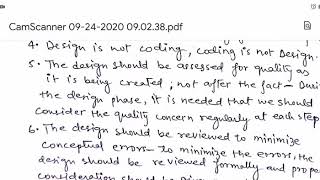 CamScanner 09-24-2020 09.02.38.pdf
4. Design is not coding, coding is not Design.
5. The design should be assessed for quality as
it is being created, not after the fact—
the design phase, it is needed that we should
consider the quality concern regularly at each step
6. The design should be reviewed to minimize
conceptual errors — to minimize the errors, the
design should be reviewed formally and
consideration should be given